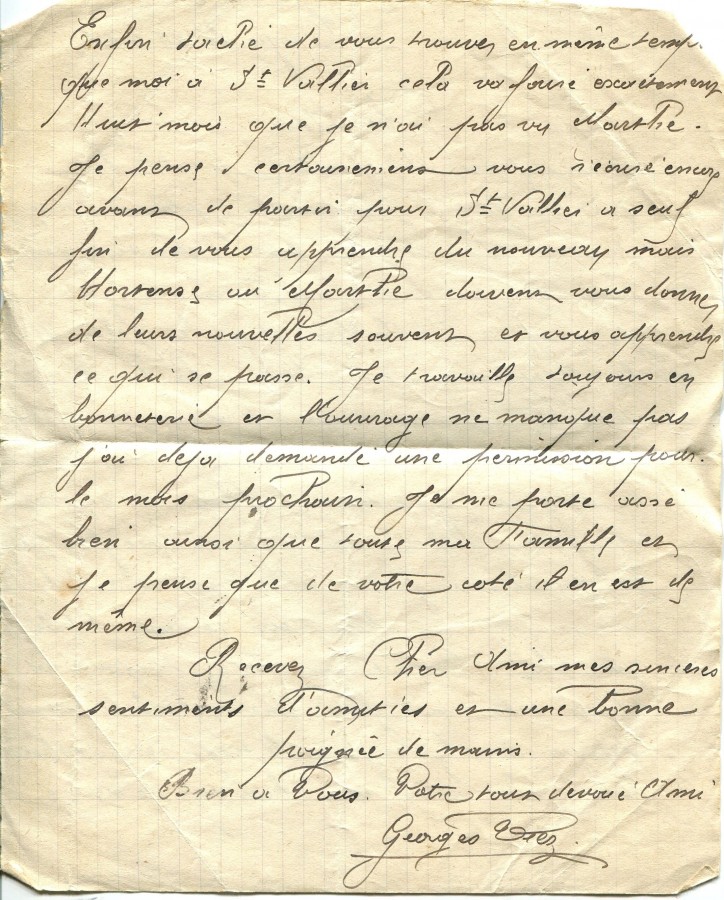 Enfin tachè de vous trouvez en même temp.
que moi a St Vallier cela va faire exactement
Huit mois que je n'ai pas vu Marthe.
Je pense certainement vous
avant de partir pour St Vallier a seul
fin de vous apprendre du nouveau mais
Hortense ou Marthe doivent vous donnez
de leurs nouvelles souvent et vous apprendre
ce qui se passe. Je travaille toujours en
bonneterie et l'ouvrage ne manque pas
j'ai deja demandé une permission pour.
le mois prochain. Je me porte assé
bien ainsi que toute ma Famille et
je pense que de votre coté il en est de
même.
Recevez Cher Ami mes sinceres
sentiments d'amitiés et une bonne
poignée de mains.
Bien a Vous. Votre tout devoué Ami
Georges